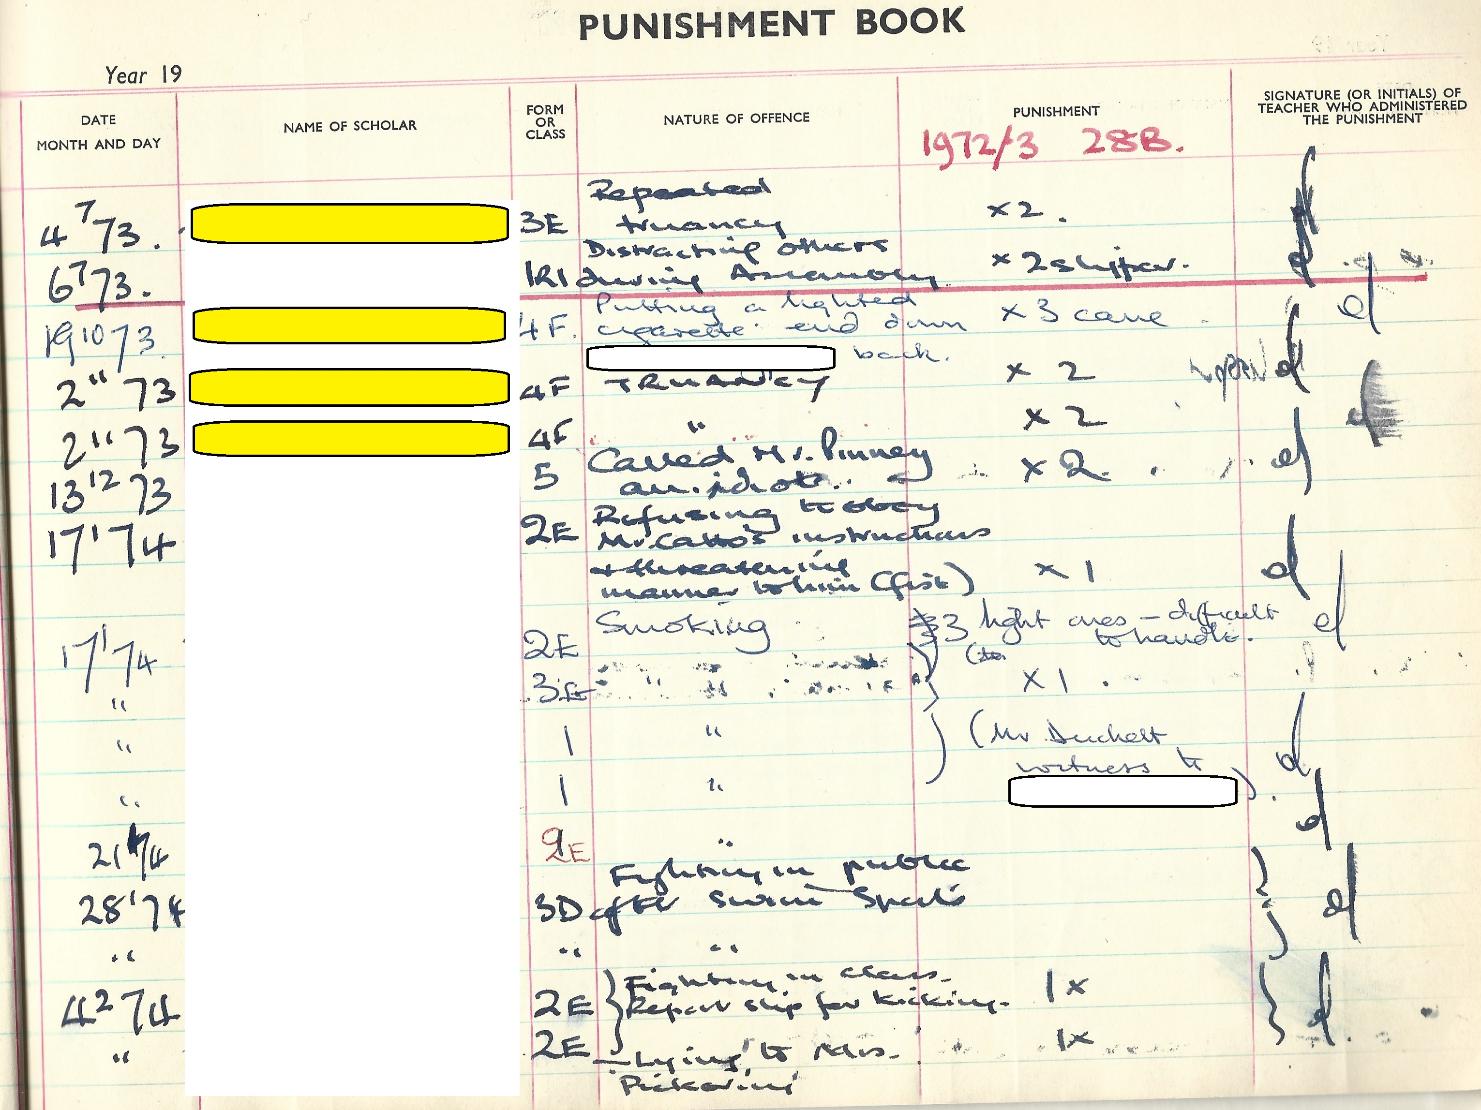 PUNISHMENT BOOK
Year 19
DATE
MONTH AND DAY
NAME OF SCHOLAR
FORM
OR
CLASS
NATURE OF OFFENCE
PUNISHMENT
SIGNATURE (OR INITIALS) OF
TEACHER WHO ADMINISTERED
THE PUNISHMENT
1972/3 28B.
Repeated
4 7 73. 3E truancy x2.
Distracting others
6 7 73. 1R1 during Assembly x 2 slipper.
Putting a lighted
19 10 73 4F. cigarette end down x 3 cane
back.
2 11 73 4F TRUANCY x 2
2 11 73 4F " x 2
Called Mr. Pinney
13 12 73 5 an idiot. x 2.
Refusing to obey
17 1 74 2E Mr. Catto's instructions
+ threatening
manner to him (fist) x 1
Smoking
17 1 74 2E 3 light ones - difficult
to handle.
" 3E " x 1.
" 1 " (Mr Duckett
witness to
" 1 " ).
21 74 2E "
Fighting in public
28 1 74 3D after swim Sports
" " "
Fighting in class.
4 2 74 2E Report slip for kicking. 1x
" 2E - Lying to Mrs. 1x
Pickering